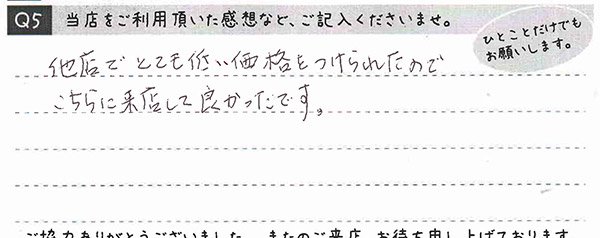 Q5 当店をご利用頂いた感想など、ご記入くださいませ。
ひとことだけでも
お願いします。
他店でとても低い価格をつけられたので
こちらに来店して良かったです。
ご協力ありがとうございました。またのご来店、お待ち申し上げております